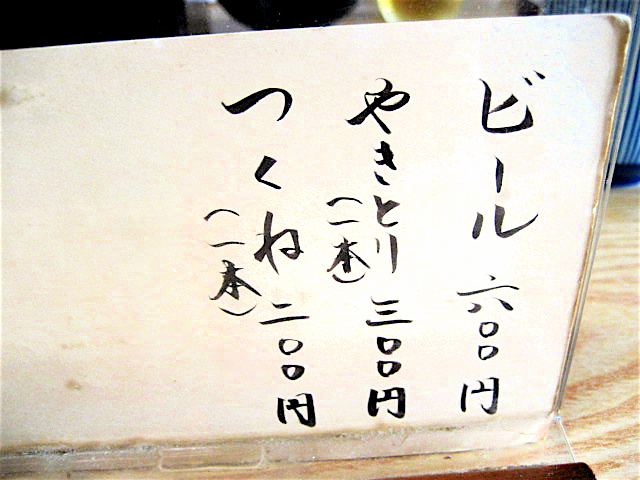 ビール 六〇〇円
やきとり(二本) 三〇〇円
つくね(二本) 二〇〇円